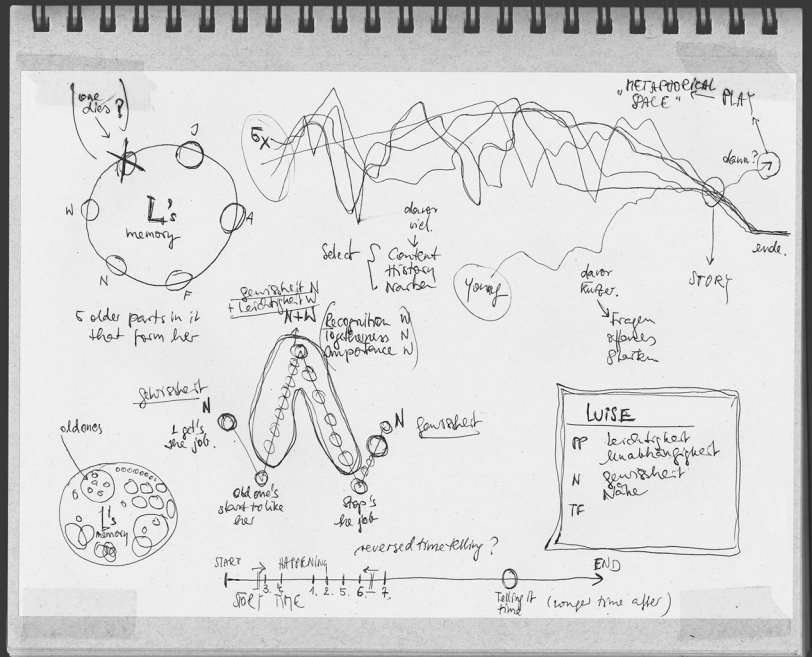 (one
dies?)
J
W
L's
memory
A
N
F
5 older parts in it
that form her
5x
"METAPHORICAL
SPACE" ← PLAY
dann?
davor
viel.
Select
Content
History
Narben
Young
davor
kurzer.
Fragen
offenes
Starten
ende.
STORY
gewissheit N
+ Leichtigkeit W
N+W
(Recognition W
Togetherness N
Importance W)
gewissheit
N
L gets
the job.
N
gewissheit
Old one's
start to like
her
Stop's
the job
old ones
L's
memory
LUISE
PP Leichtigkeit
Unabhängigkeit
N gewissheit
Nähe
TF
reversed timetelling?
START
HAPPENING
END
3. 4. 1. 2. 5. 6. 7.
STORY TIME
Telling it
time
(longer time after)